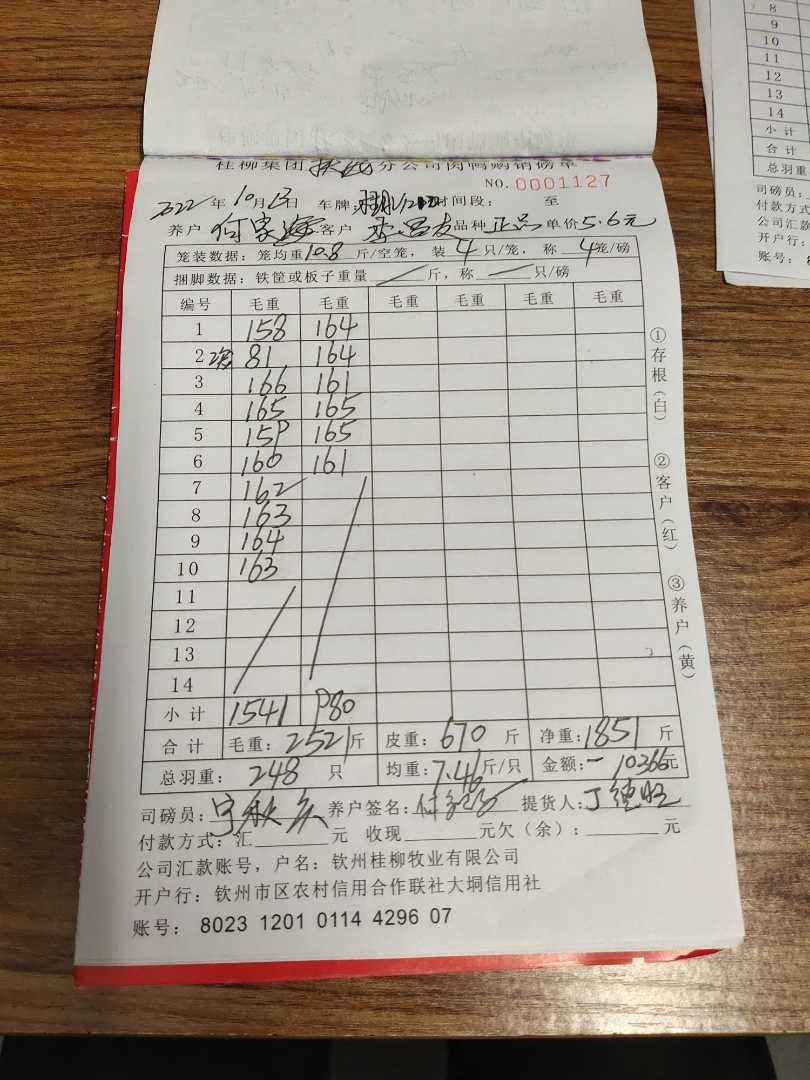 桂柳集团扶绥分公司肉鸭购销磅单
NO. 0001127
2022年10月13日 车牌: 时间段: 至
养户 何家海 客户 李昌友 品种 正品 单价5.6元
笼装数据: 笼均重10.8斤/空笼, 装4只/笼, 称4笼/磅
捆脚数据: 铁筐或板子重量/斤, 称—只/磅
编号 毛重 毛重 毛重 毛重 毛重 毛重
1 158 164
2 81 164
3 166 161
4 165 165
5 159 165
6 160 161
7 162
8 163
9 164
10 163
11
12
13
14
小计 1541 980
合计 毛重: 2521斤 皮重: 670斤 净重: 1851斤
总羽重: 248只 均重: 7.46斤/只 金额: 10366元
司磅员: 养户签名: 提货人:
付款方式: 汇 元 收现 元欠(余): 元
公司汇款账号, 户名: 钦州桂柳牧业有限公司
开户行: 钦州市区农村信用合作联社大垌信用社
账号: 8023 1201 0114 4296 07
①存根(白)
②客户(红)
③养户(黄)
8
9
10
11
12
13
14
小计
合计
总羽重
司磅员:
付款方式
公司汇款
开户行:
账号: 8